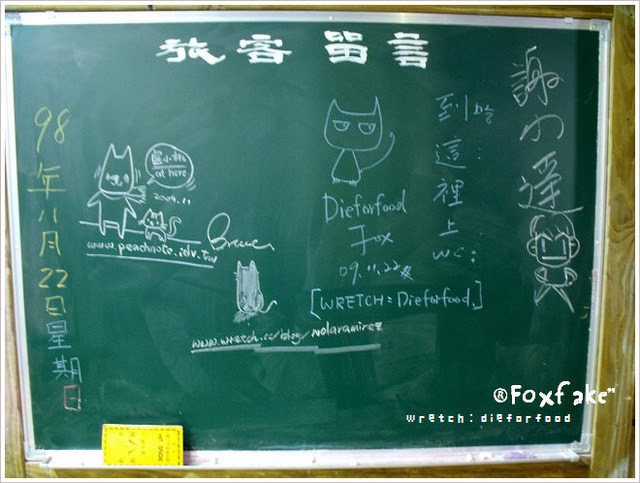 旅客 留言
98年11月22日星期日
at here
2009.11
www.peachnote.idv.tw
www.wretch.cc/blog/nolaramirez
Dieforfood
Fox
09.11.22
[WRETCH:Dieforfood.]
到此
這裡上
WC:
®Foxfake"
wretch:dieforfood